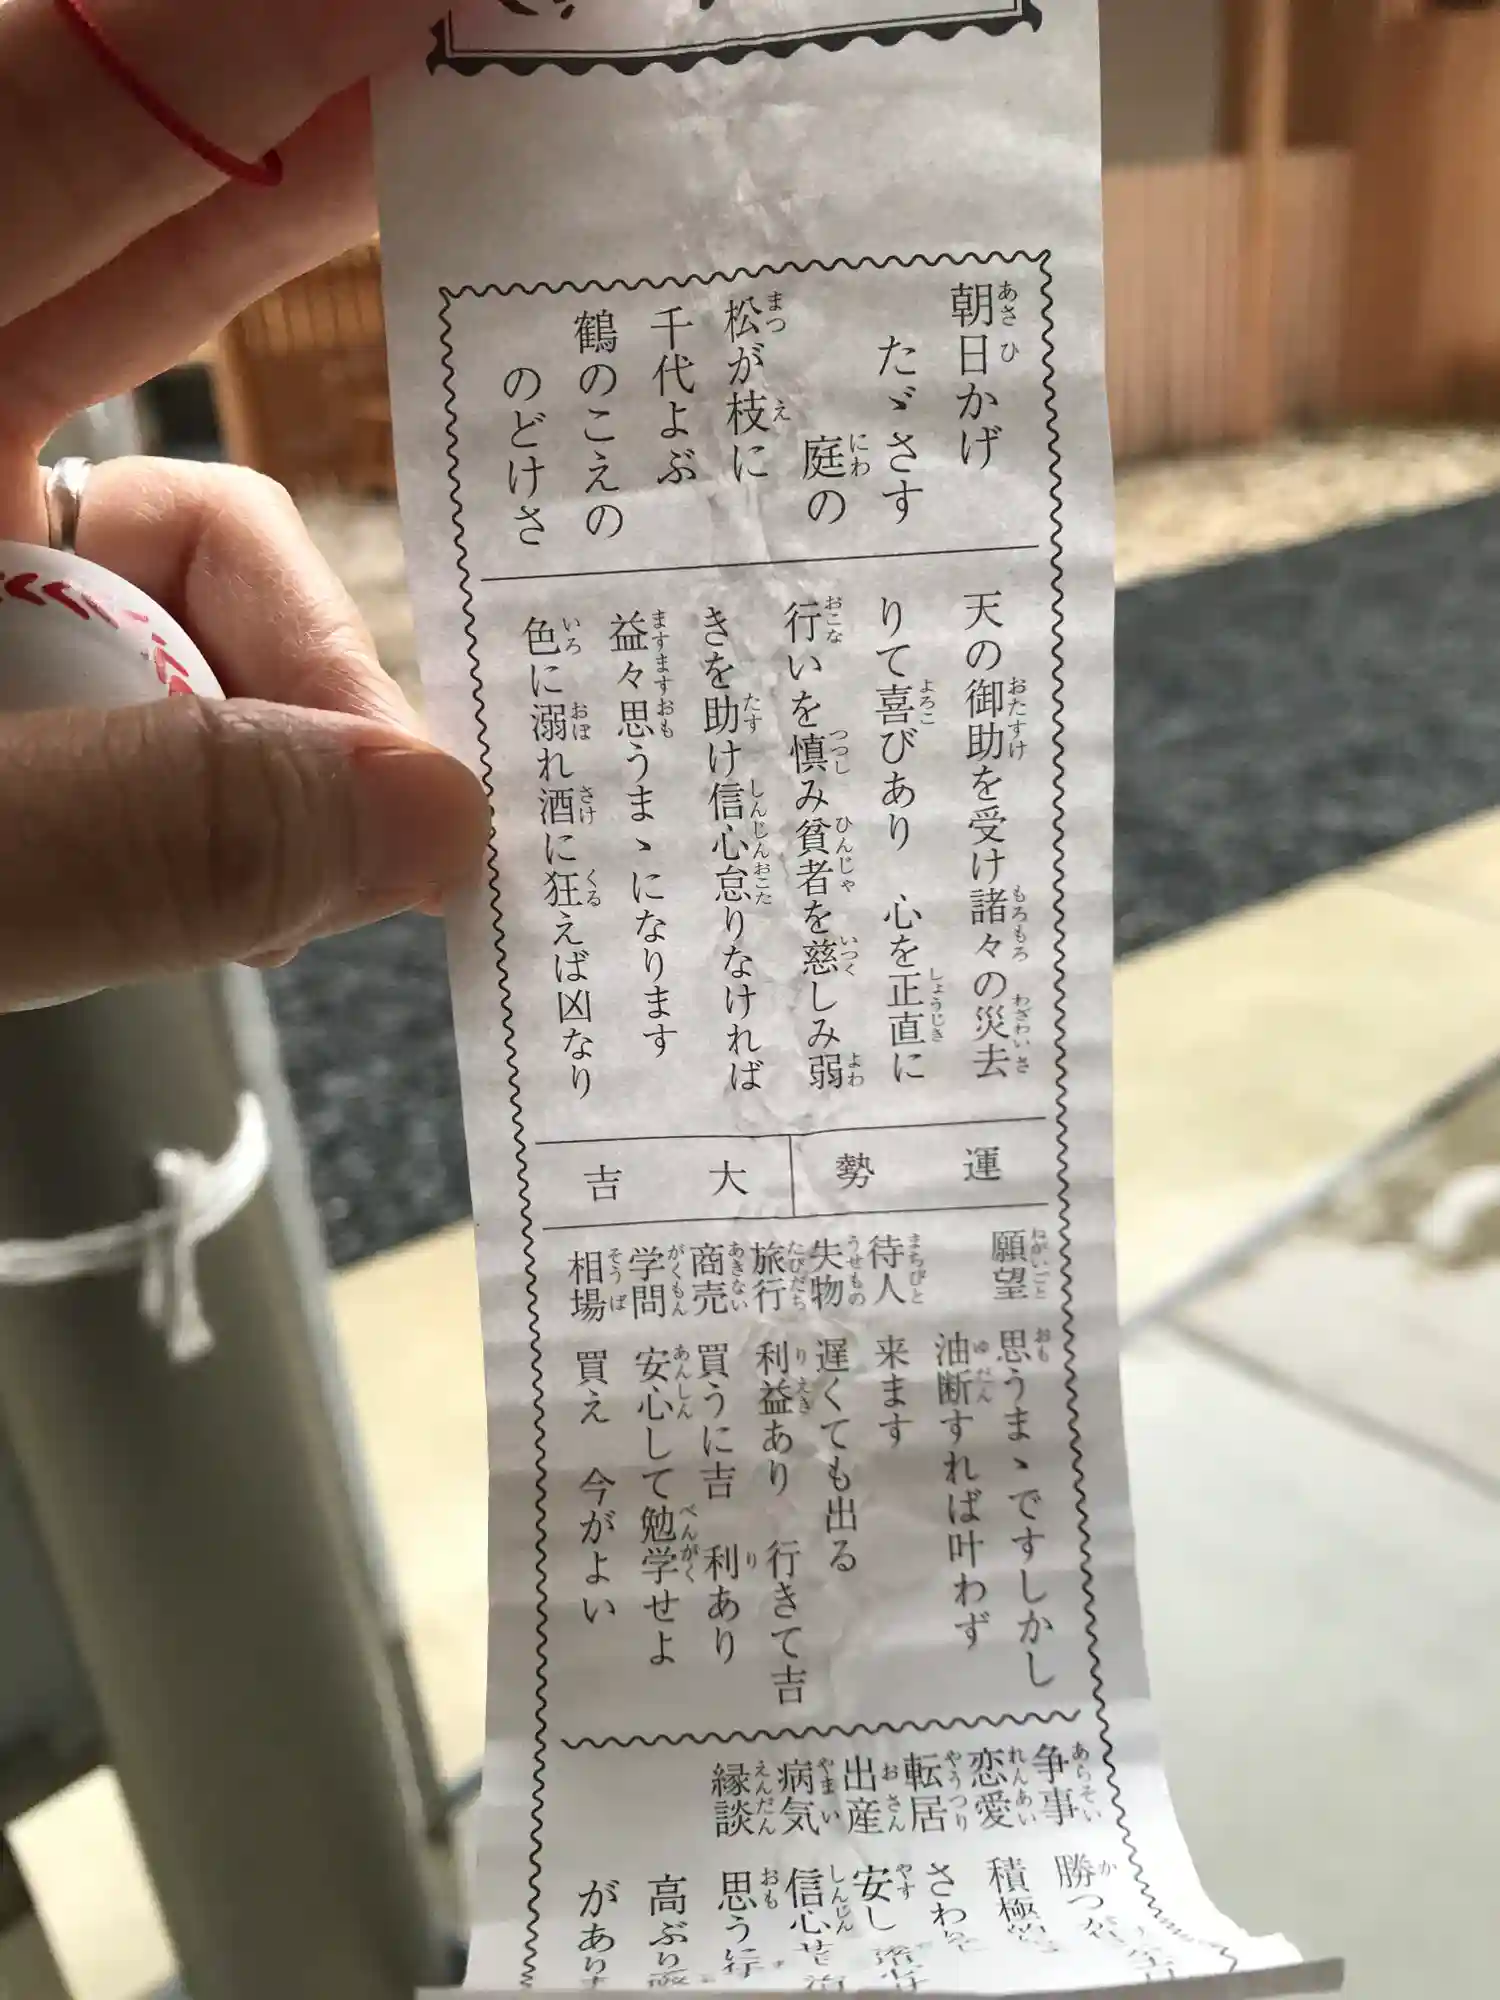 朝日かげ
たゞさす
庭の
松が枝に
千代よぶ
鶴のこえの
のどけさ
天の御助を受け諸々の災去
りて喜びあり 心を正直に
行いを慎み貧者を慈しみ弱
きを助け信心怠りなければ
益々思うまゝになります
色に溺れ酒に狂えば凶なり
運勢 大吉
願望 思うまゝですしかし
油断すれば叶わず
待人 来ます
失物 遅くても出る
旅行 利益あり 行きて吉
商売 買うに吉 利あり
学問 安心して勉学せよ
相場 買え 今がよい
争事 勝つ
恋愛 積極
転居 さわり
出産 安し
病気 信心せ
縁談 思う
高ぶり
があり